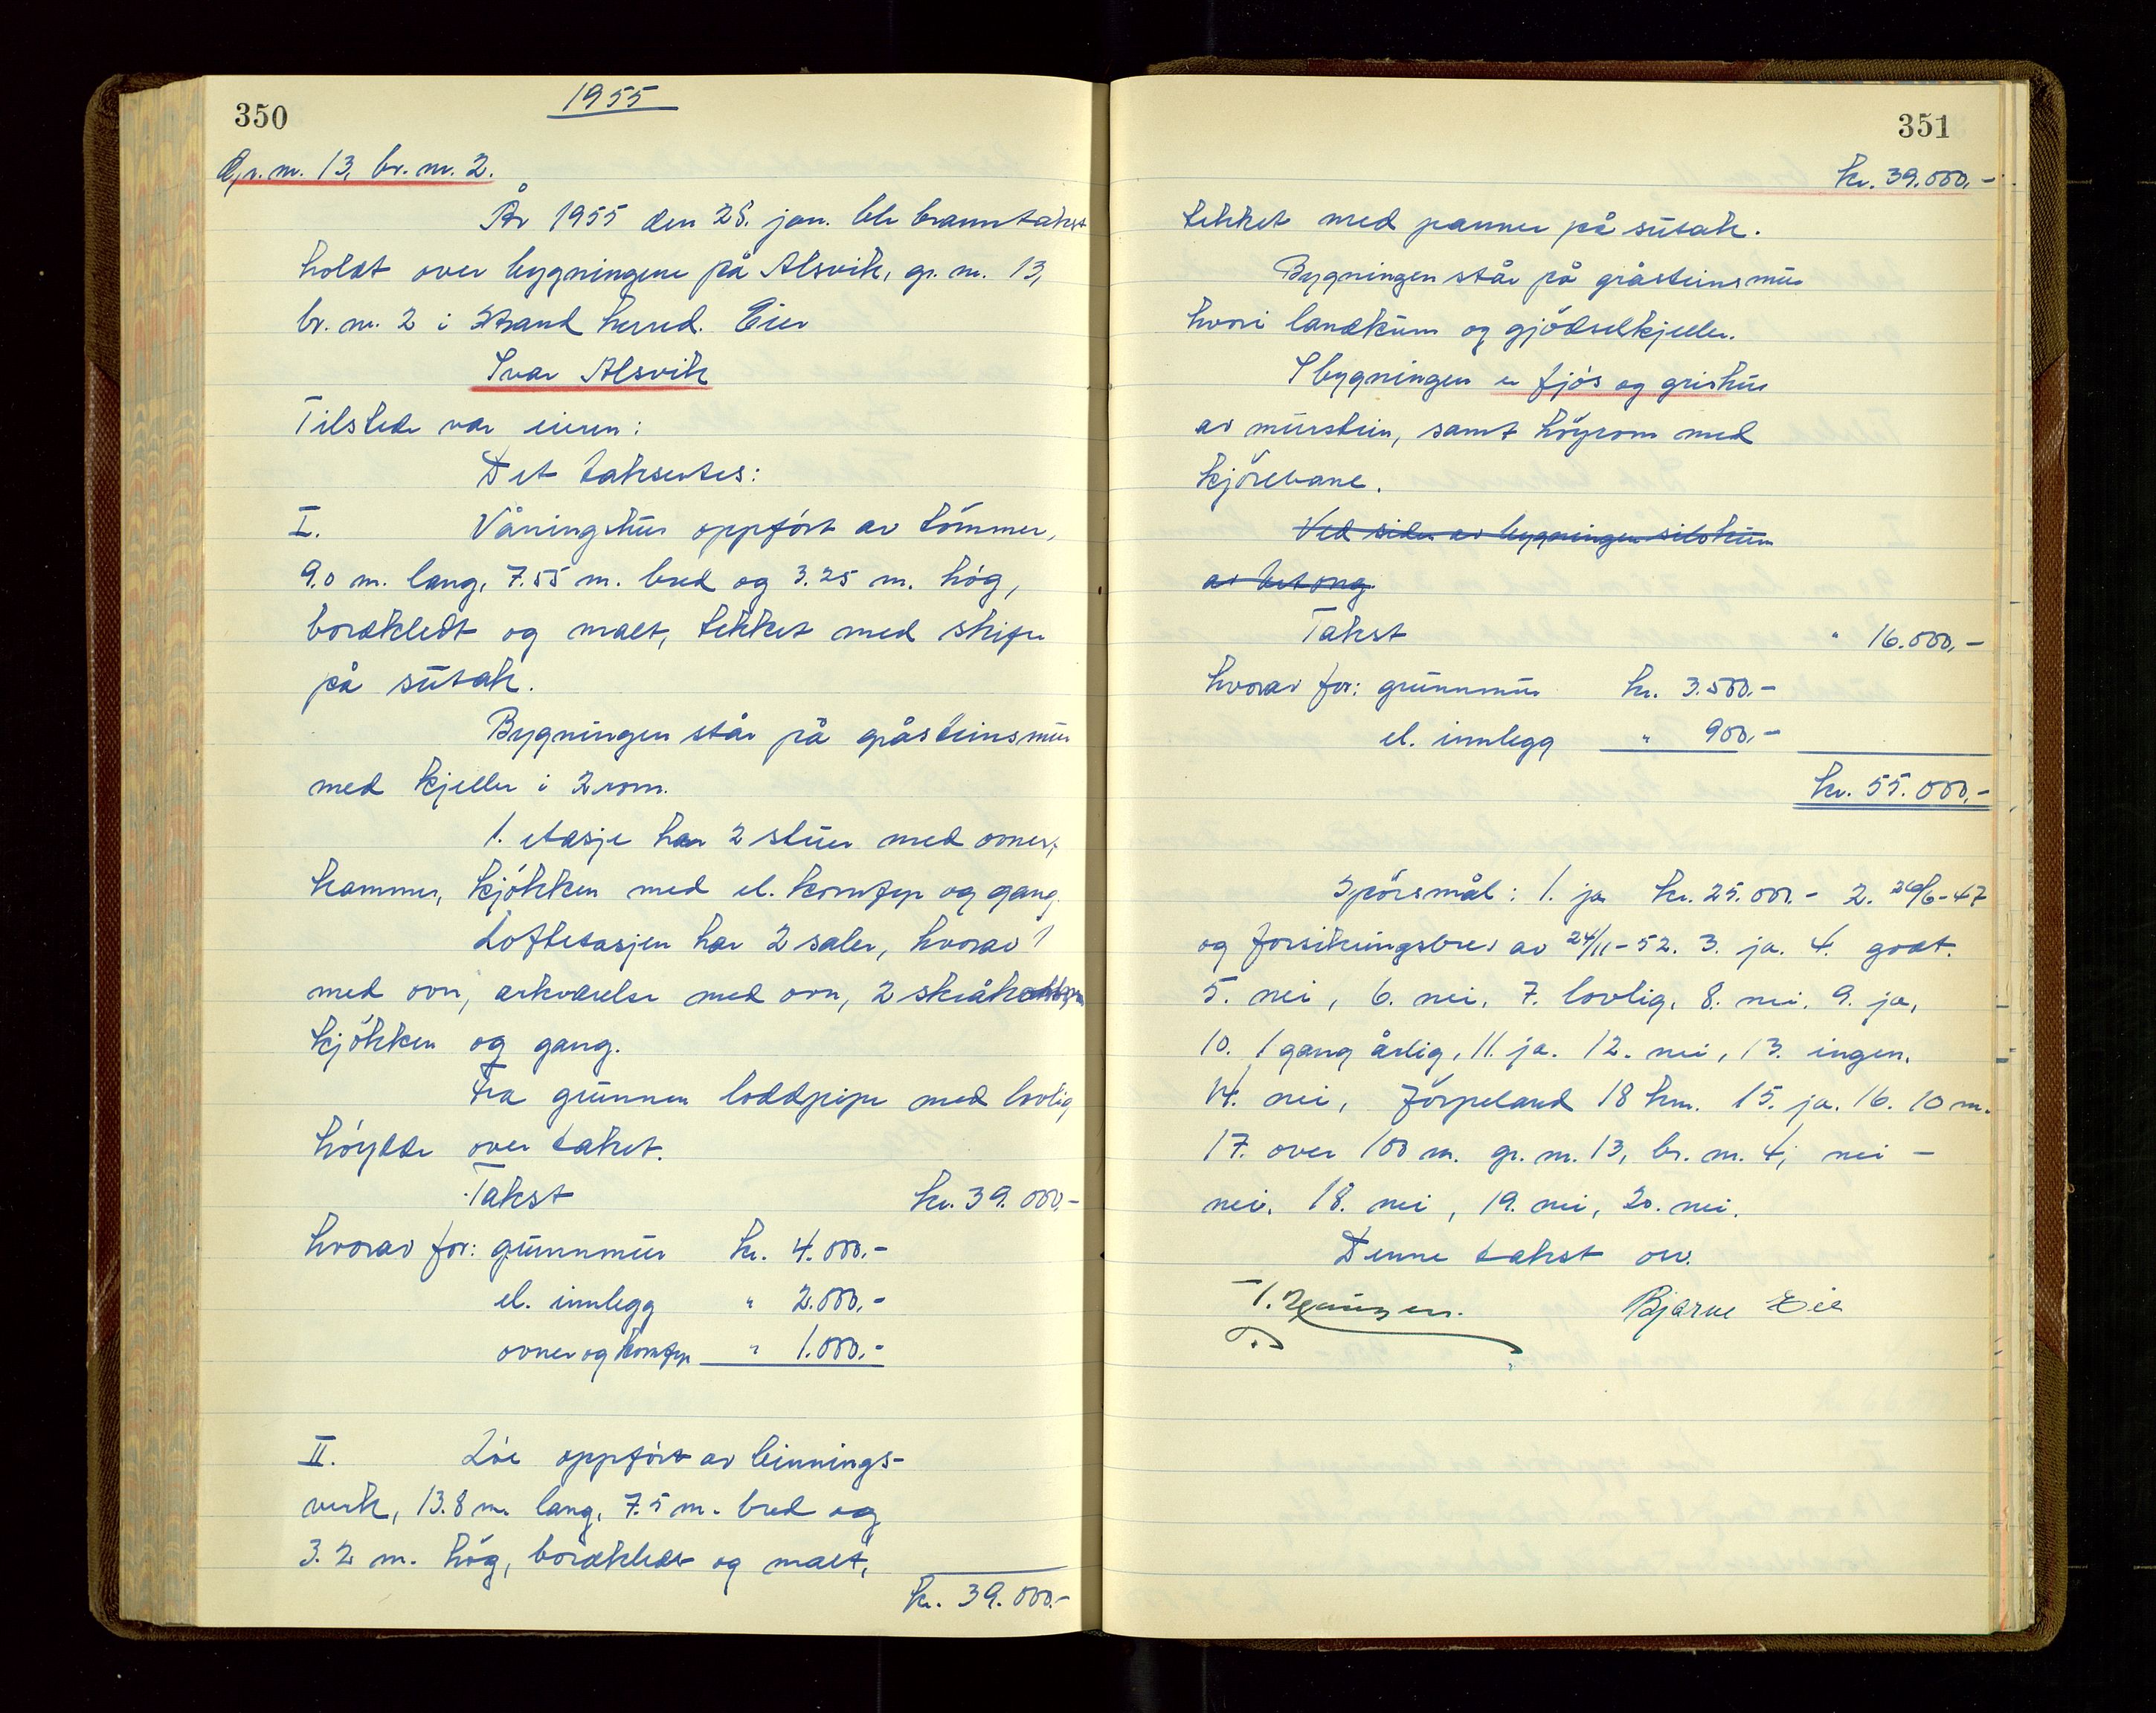 350
1955
Gr. nr. 13, br. nr. 2.
År 1955 den 28. jan. ble branntakst
holdt over bygningene på Alsvik, gr. nr. 13,
br. nr. 2 i Strand herred. Eier
Ivar Alsvik
Tilstede var eieren:
Det taksertes:
I. Våningshus oppført av tömmer,
9.0 m. lang, 7.55 m. bred og 3.25 m. hög,
bordkledt og malt, tekket med skifer
på sutak.
Bygningen står på gråsteinsmur
med kjeller i 2 rom.
1. etasje har 2 stuer med ovner,
kammer, kjökken med el. komfyr og gang.
Loftetasjen har 2 saler, hvorav 1
med ovn, arkværelse med ovn, 2 skråk
kjökken og gang.
Fra grunnen loddpipe med lovlig
höyde over taket.
Takst kr. 39.000,-
hvorav for: grunnmur kr. 4.000,-
el. innlegg " 2.000,-
ovner og komfyr " 1.000,-
II. Löe oppfört av binnings-
verk, 13.8 m. lang, 7.5 m. bred og
3.2 m. hög, bordkledt og malt,
kr. 39.000.-
351
kr. 39.000,-
tekket med panner på sutak.
Bygningen står på gråsteinsmur
hvori landkum og gjödselkjeller.
I bygningen er fjös og grishus
av murstein, samt höyrom med
kjörebane.
Ved siden av bygningen silokum
av betong.
Takst " 16.000,-
hvorav for: grunnmur kr. 3.500,-
el. innlegg " 900,-
kr. 55.000,-
Spörsmål: 1. ja kr. 25.000.- 2. 26/6-47
og forsikringsbrev av 24/11-52. 3. ja. 4. godt.
5. nei, 6. nei, 7. lovlig, 8. nei, 9. ja,
10. 1 gang årlig, 11. ja. 12. nei, 13. ingen.
14. nei, Jörpeland 18 km. 15. ja. 16. 10 m.
17. over 100 m. gr. nr. 13, br. nr. 4, nei -
nei. 18. nei, 19. nei, 20. nei.
Denne takst osv.
Bjarne Eie